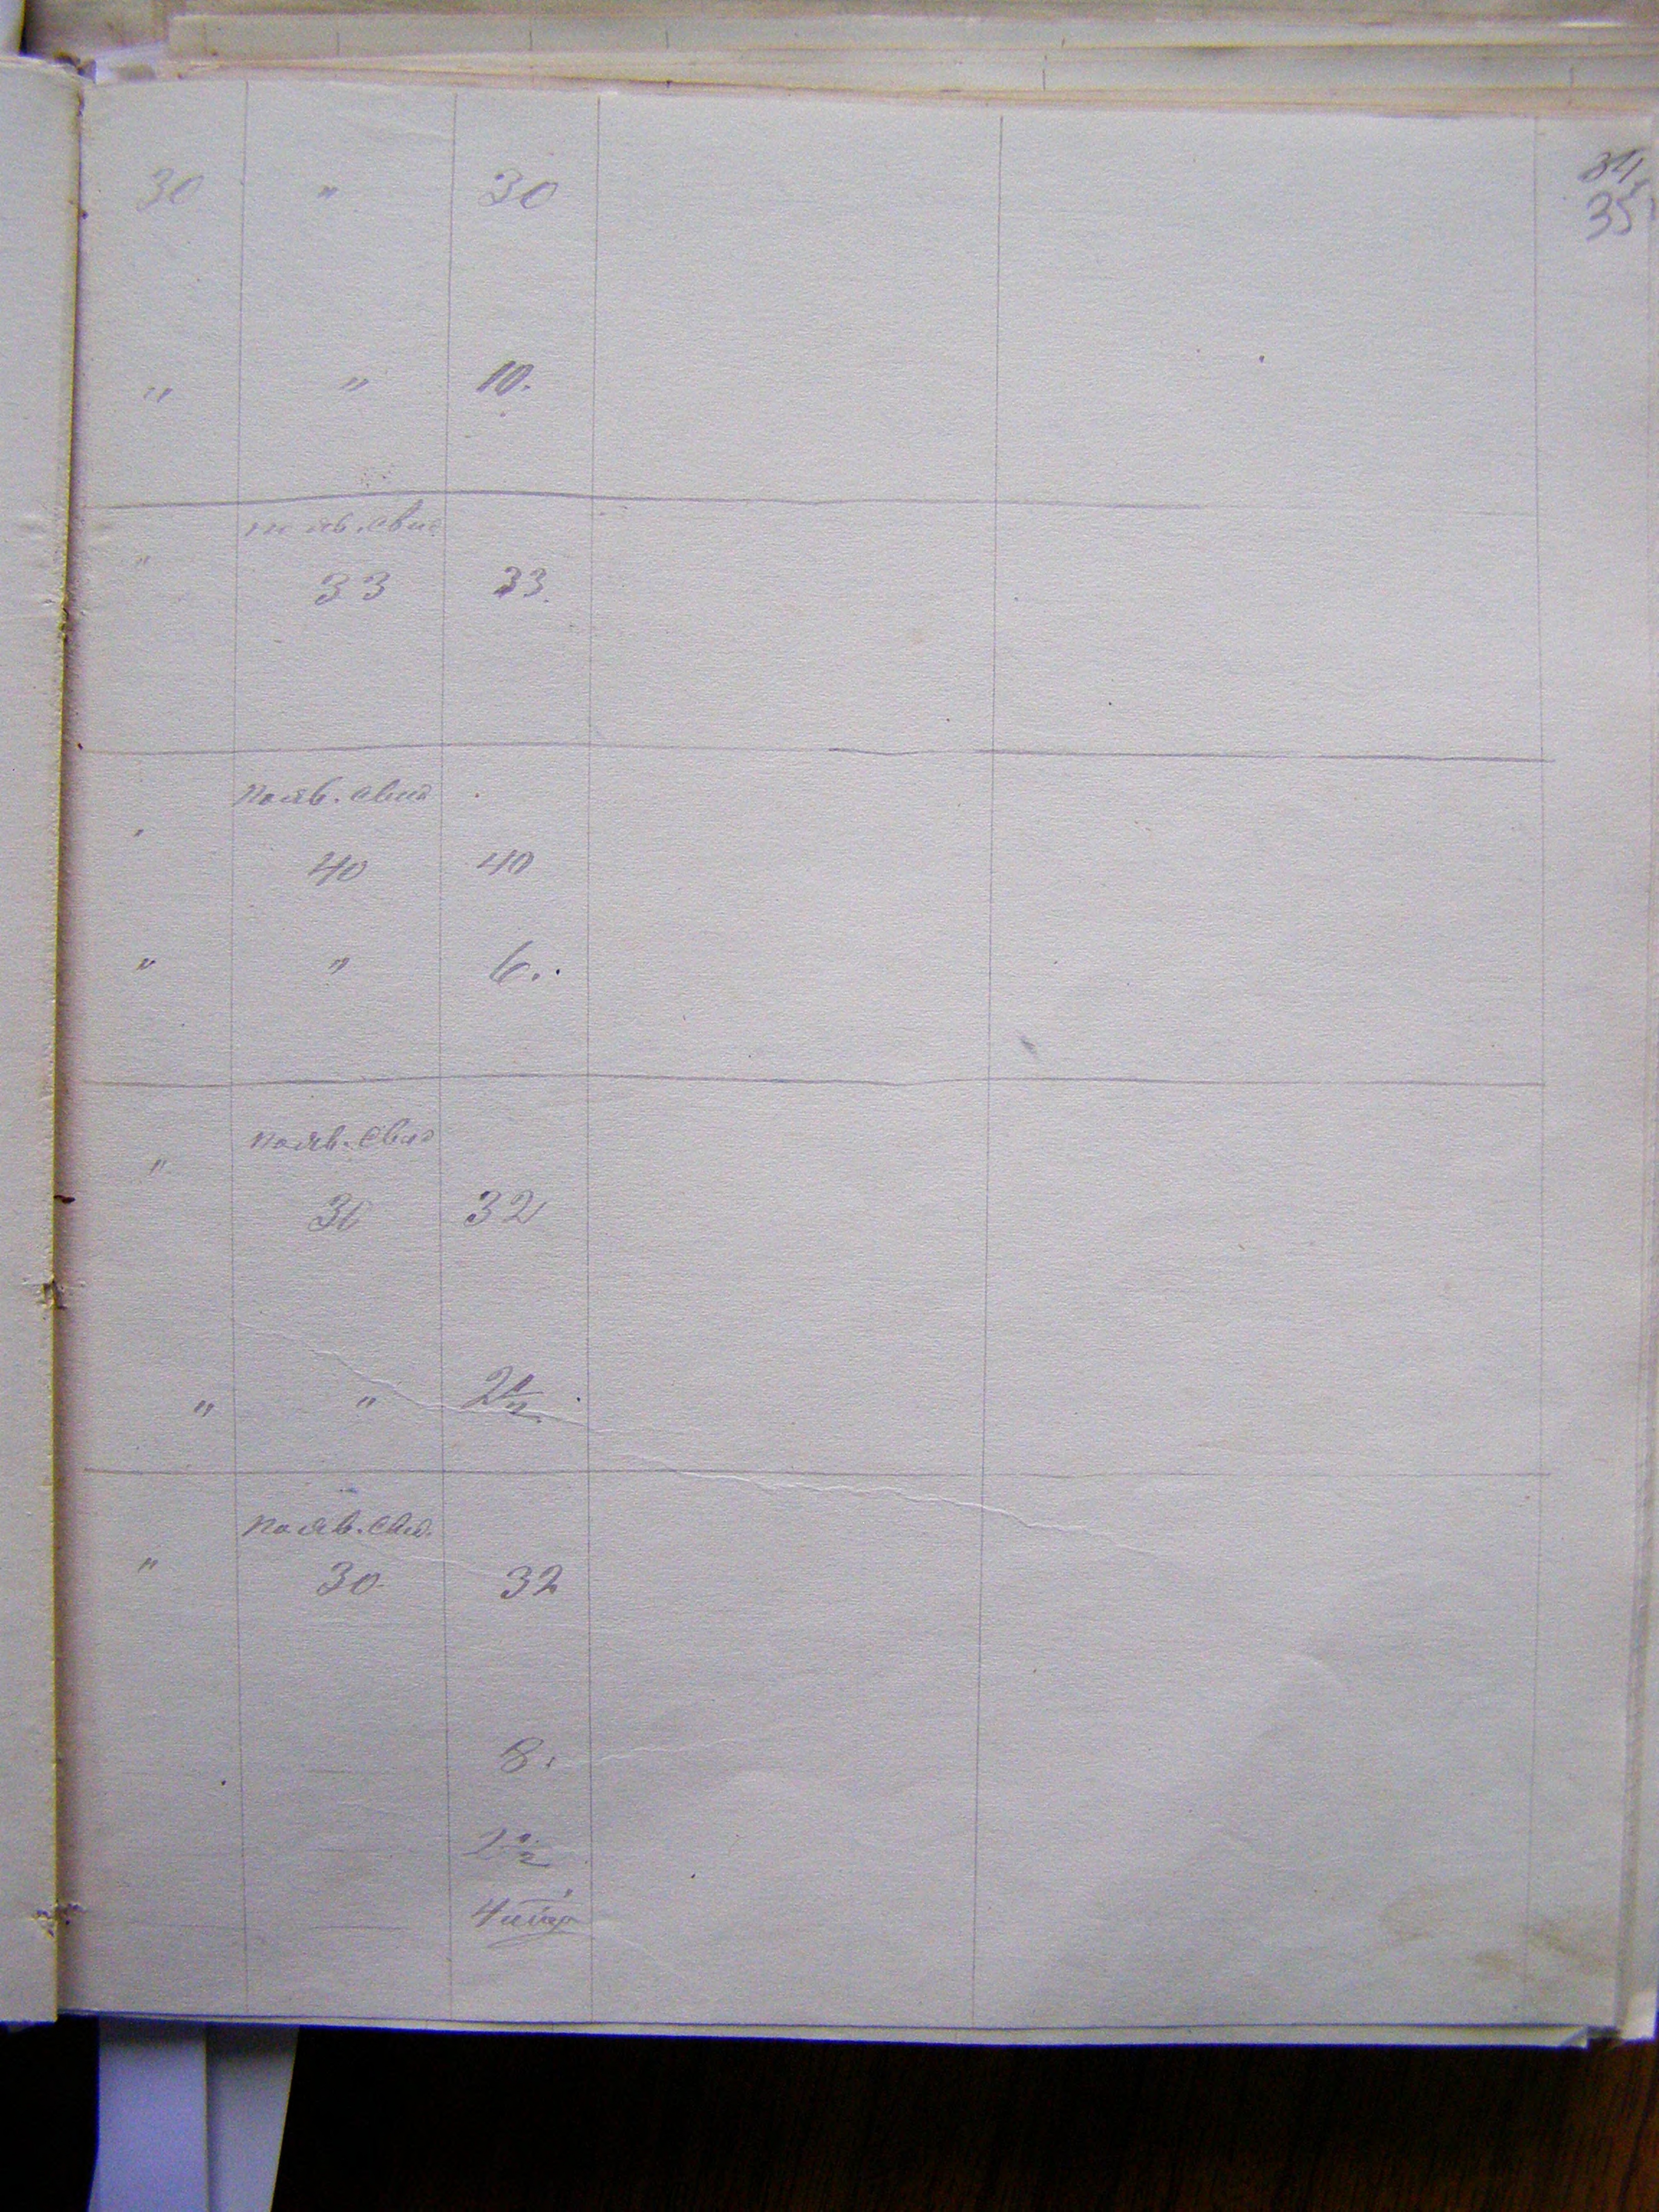 34
35
30 " 30
" " 10.
по яв. свид.
"
33 33.
по яв. свид
"
40 40
" " 6.
по яв. свид
"
30 32
" "
по яв. свид.
"
30 32
8.